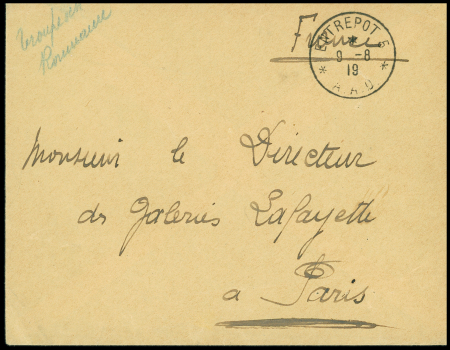 Troupes en
Roumanie
France
ENTREPOT 5
*
9 -8
19
* A R D *
Monsieur le Directeur
des Galeries Lafayette
a Paris